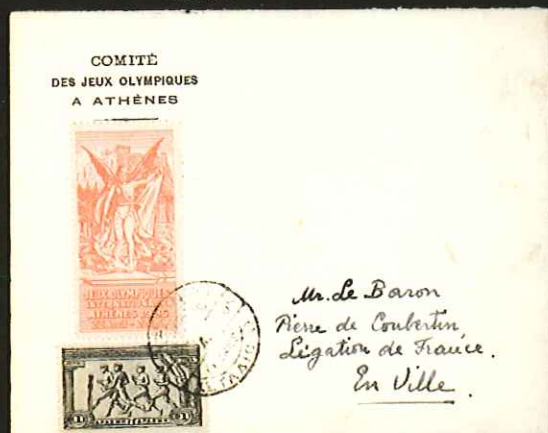 COMITÉ
DES JEUX OLYMPIQUES
A ATHÈNES
JEUX OLYMPIQUES
INTERNATIONAUX
ATHÈNES
Mr. Le Baron
Pierre de Coubertin,
Légation de France.
En Ville
1 1